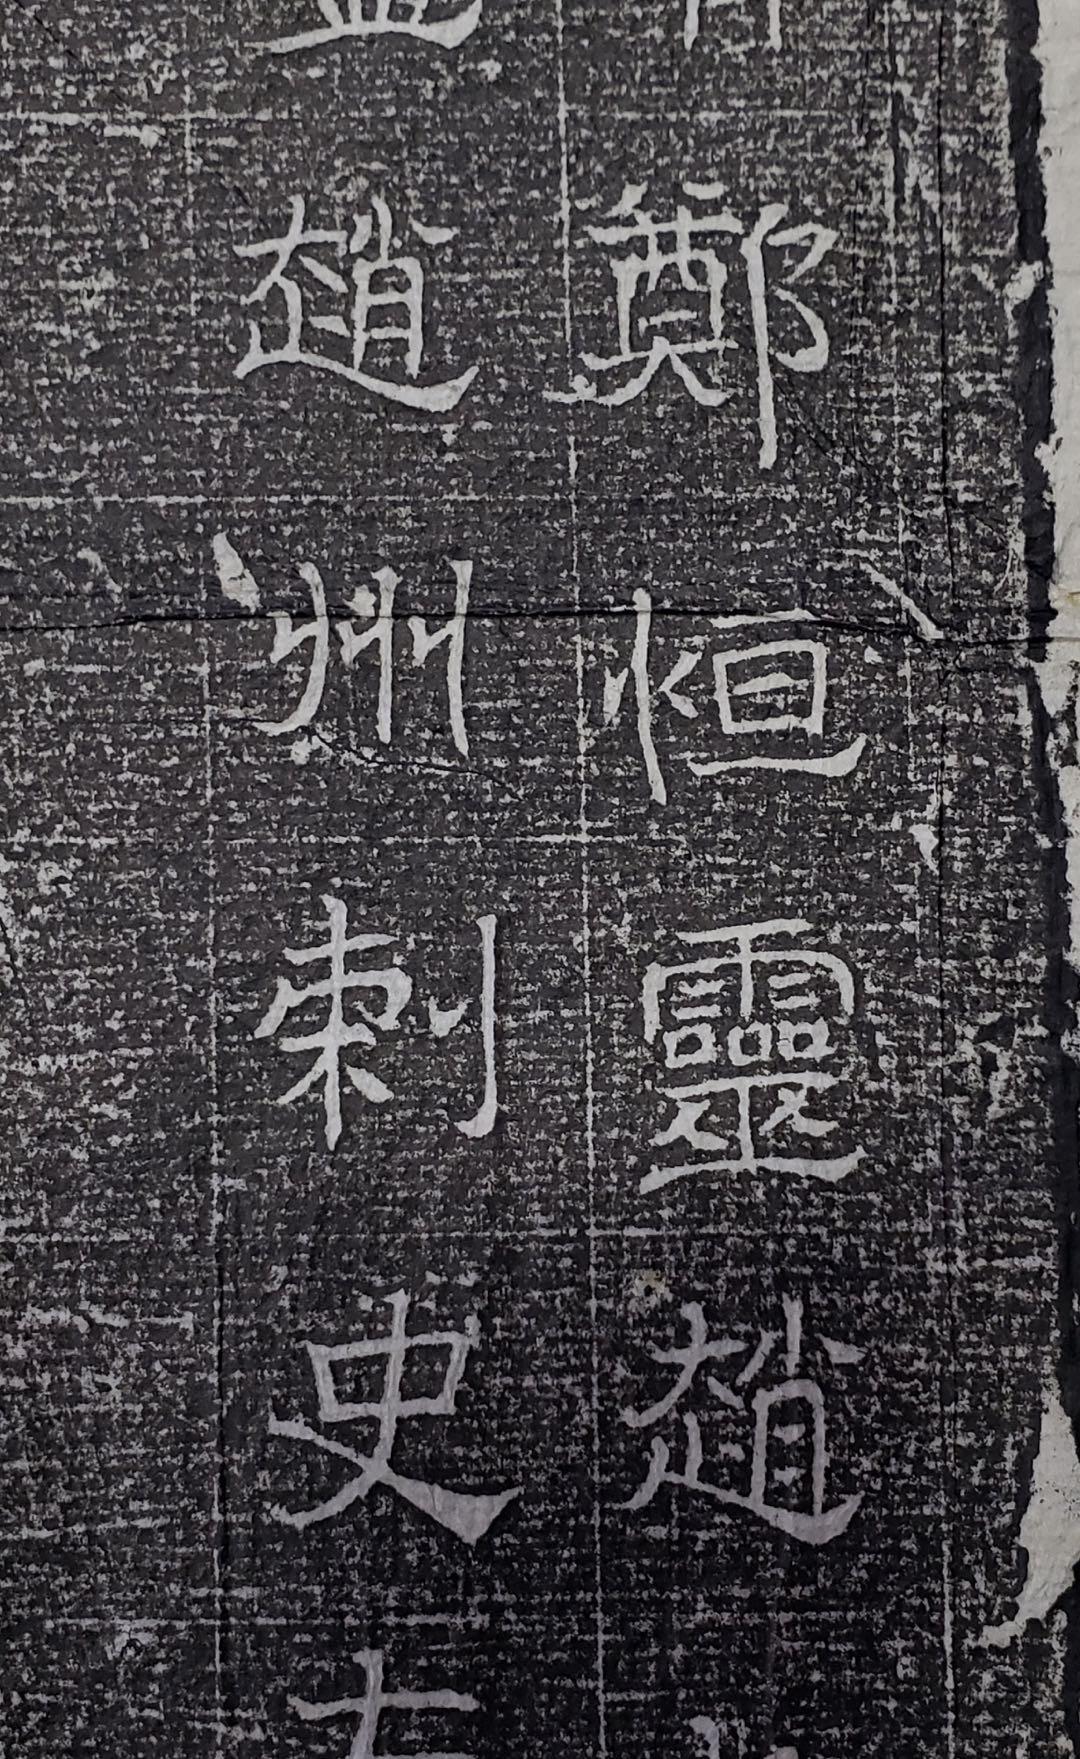 鄭恒靈趙
趙州刺史